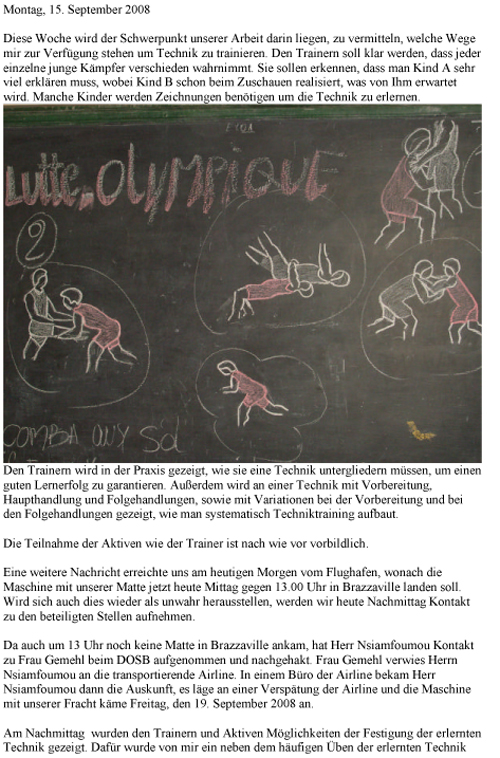 Montag, 15. September 2008
Diese Woche wird der Schwerpunkt unserer Arbeit darin liegen, zu vermitteln, welche Wege
mir zur Verfügung stehen um Technik zu trainieren. Den Trainern soll klar werden, dass jeder
einzelne junge Kämpfer verschieden wahrnimmt. Sie sollen erkennen, dass man Kind A sehr
viel erklären muss, wobei Kind B schon beim Zuschauen realisiert, was von Ihm erwartet
wird. Manche Kinder werden Zeichnungen benötigen um die Technik zu erlernen.
Lutte OLYMPIQUE
2
COMBA
Den Trainern wird in der Praxis gezeigt, wie sie eine Technik untergliedern müssen, um einen
guten Lernerfolg zu garantieren. Außerdem wird an einer Technik mit Vorbereitung,
Haupthandlung und Folgehandlungen, sowie mit Variationen bei der Vorbereitung und bei
den Folgehandlungen gezeigt, wie man systematisch Techniktraining aufbaut.
Die Teilnahme der Aktiven wie der Trainer ist nach wie vor vorbildlich.
Eine weitere Nachricht erreichte uns am heutigen Morgen vom Flughafen, wonach die
Maschine mit unserer Matte jetzt heute Mittag gegen 13.00 Uhr in Brazzaville landen soll.
Wird sich auch dies wieder als unwahr herausstellen, werden wir heute Nachmittag Kontakt
zu den beteiligten Stellen aufnehmen.
Da auch um 13 Uhr noch keine Matte in Brazzaville ankam, hat Herr Nsiamfoumou Kontakt
zu Frau Gemehl beim DOSB aufgenommen und nachgehakt. Frau Gemehl verwies Herrn
Nsiamfoumou an die transportierende Airline. In einem Büro der Airline bekam Herr
Nsiamfoumou dann die Auskunft, es läge an einer Verspätung der Airline und die Maschine
mit unserer Fracht käme Freitag, den 19. September 2008 an.
Am Nachmittag wurden den Trainern und Aktiven Möglichkeiten der Festigung der erlernten
Technik gezeigt. Dafür wurde von mir ein neben dem häufigen Üben der erlernten Technik